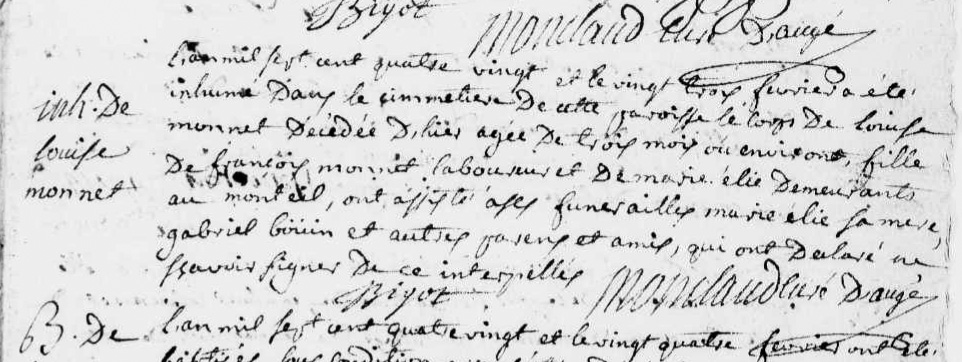 Bigot Monclaud Curé D'augé
Lan mil sept cent quatre vingt et le vingt trois fevrier a été
inh. De
inhumé Dans le cimmetiere De cette paroisse le corps De louise
louise
monnet Décédée D'hier agée De trois mois ou environt, fille
monnet
De françois monnet laboureur et De marie élie Demeurants
au monteil, ont assisté a ses funerailles marie élie sa mere,
gabriel bouin et autres parens et amis, qui ont Declaré ne
sçavoir signer De ce interpellés
Bigot Monclaud Curé D'augé
B. De
Lan mil sept cent quatre vingt et le vingt quatre fevrier ont été